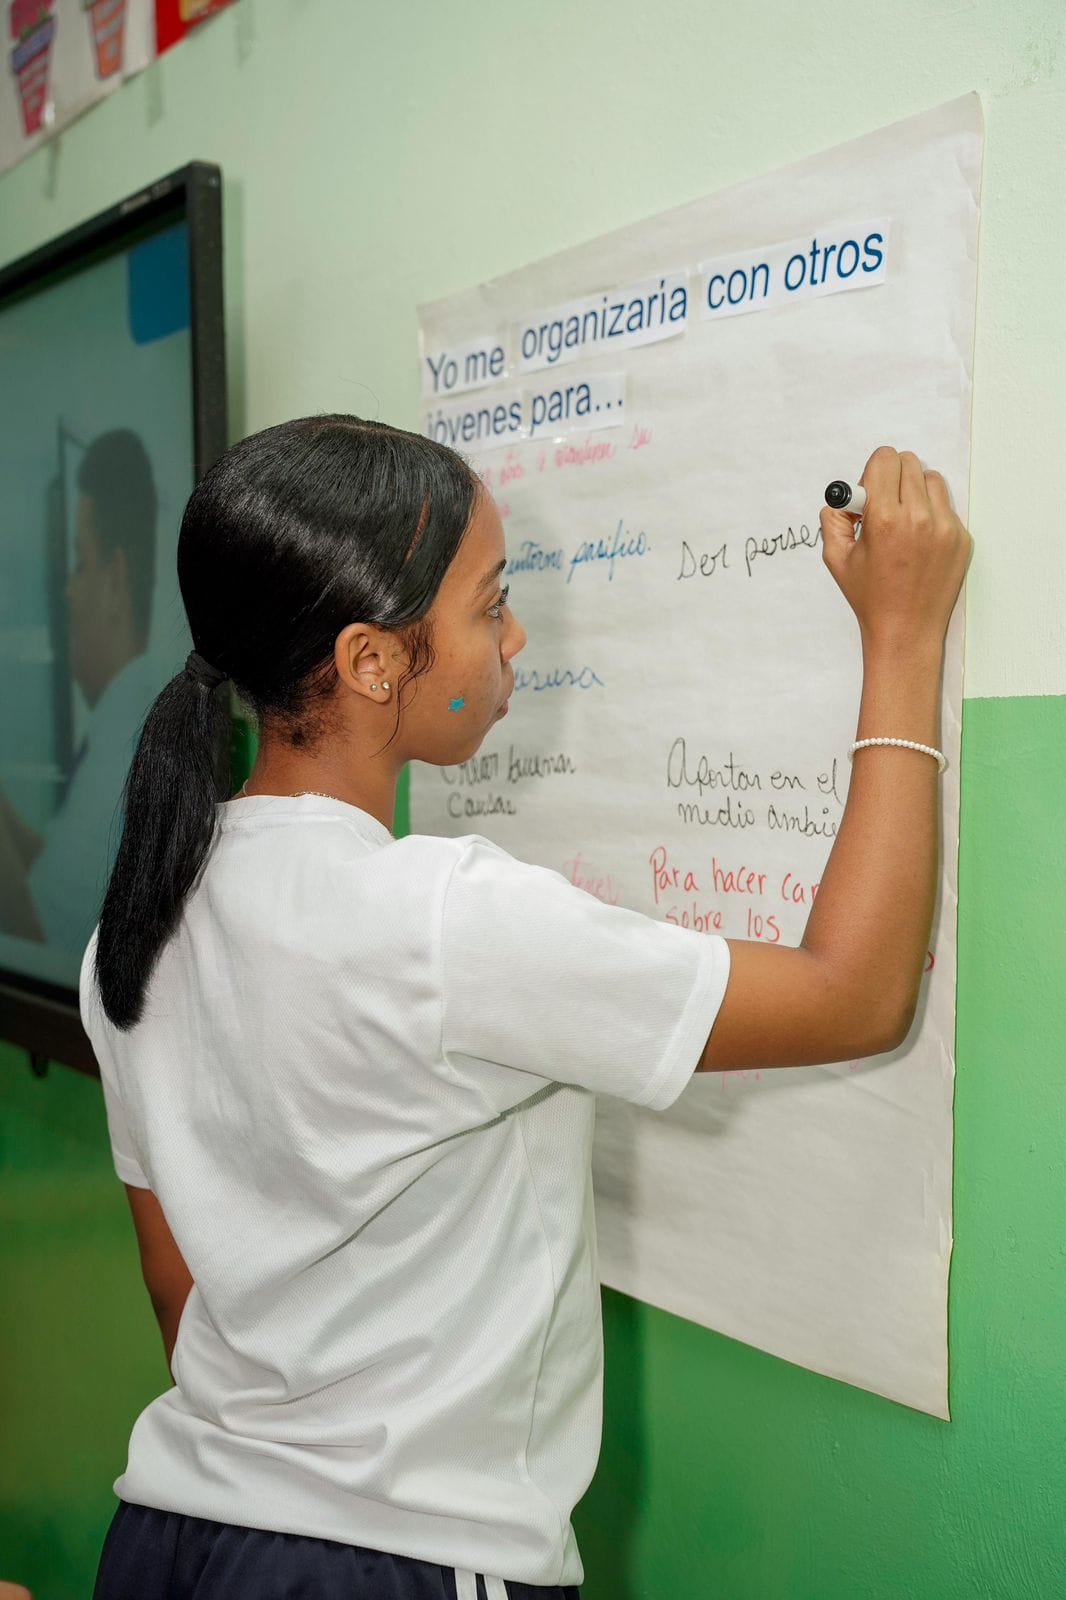 Yo me organizaría con otros
jóvenes para...
su
entorno pasifico.
Ser perse
Crear buenas
causas
Aportar en el
medio ambie
tener
Para hacer car
sobre los